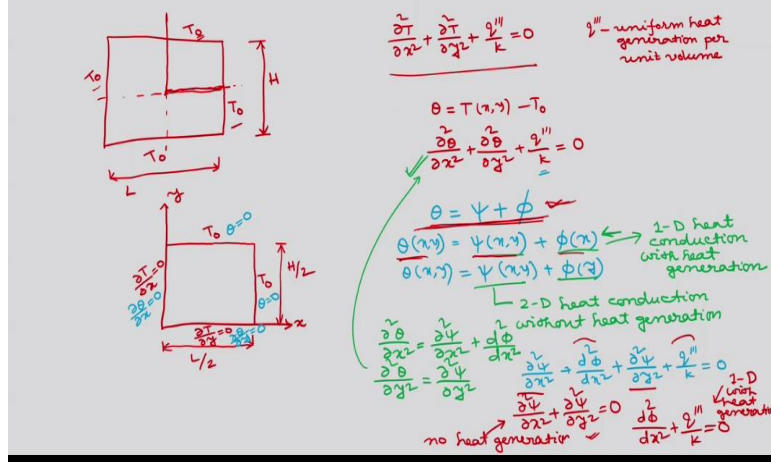 T₀
T₀
H
T₀
T₀
L
y
T₀ θ=0
∂T/∂x=0
∂θ/∂x=0
T₀
θ=0
H/2
∂T/∂y=0 ∂θ/∂y=0
x
L/2
∂²T/∂x² + ∂²T/∂y² + q'''/k = 0
q''' - uniform heat
generation per
unit volume
θ = T(x,y) - T₀
∂²θ/∂x² + ∂²θ/∂y² + q'''/k = 0
θ = ψ + φ
θ(x,y) = ψ(x,y) + φ(x)
1-D heat
conduction
with heat
generation
θ(x,y) = ψ(x,y) + φ(y)
2-D heat conduction
without heat generation
∂²θ/∂x² = ∂²ψ/∂x² + d²φ/dx²
∂²θ/∂y² = ∂²ψ/∂y²
∂²ψ/∂x² + d²φ/dx² + ∂²ψ/∂y² + q'''/k = 0
∂²ψ/∂x² + ∂²ψ/∂y² = 0
no heat generation
d²φ/dx² + q'''/k = 0
1-D
with
heat
generation